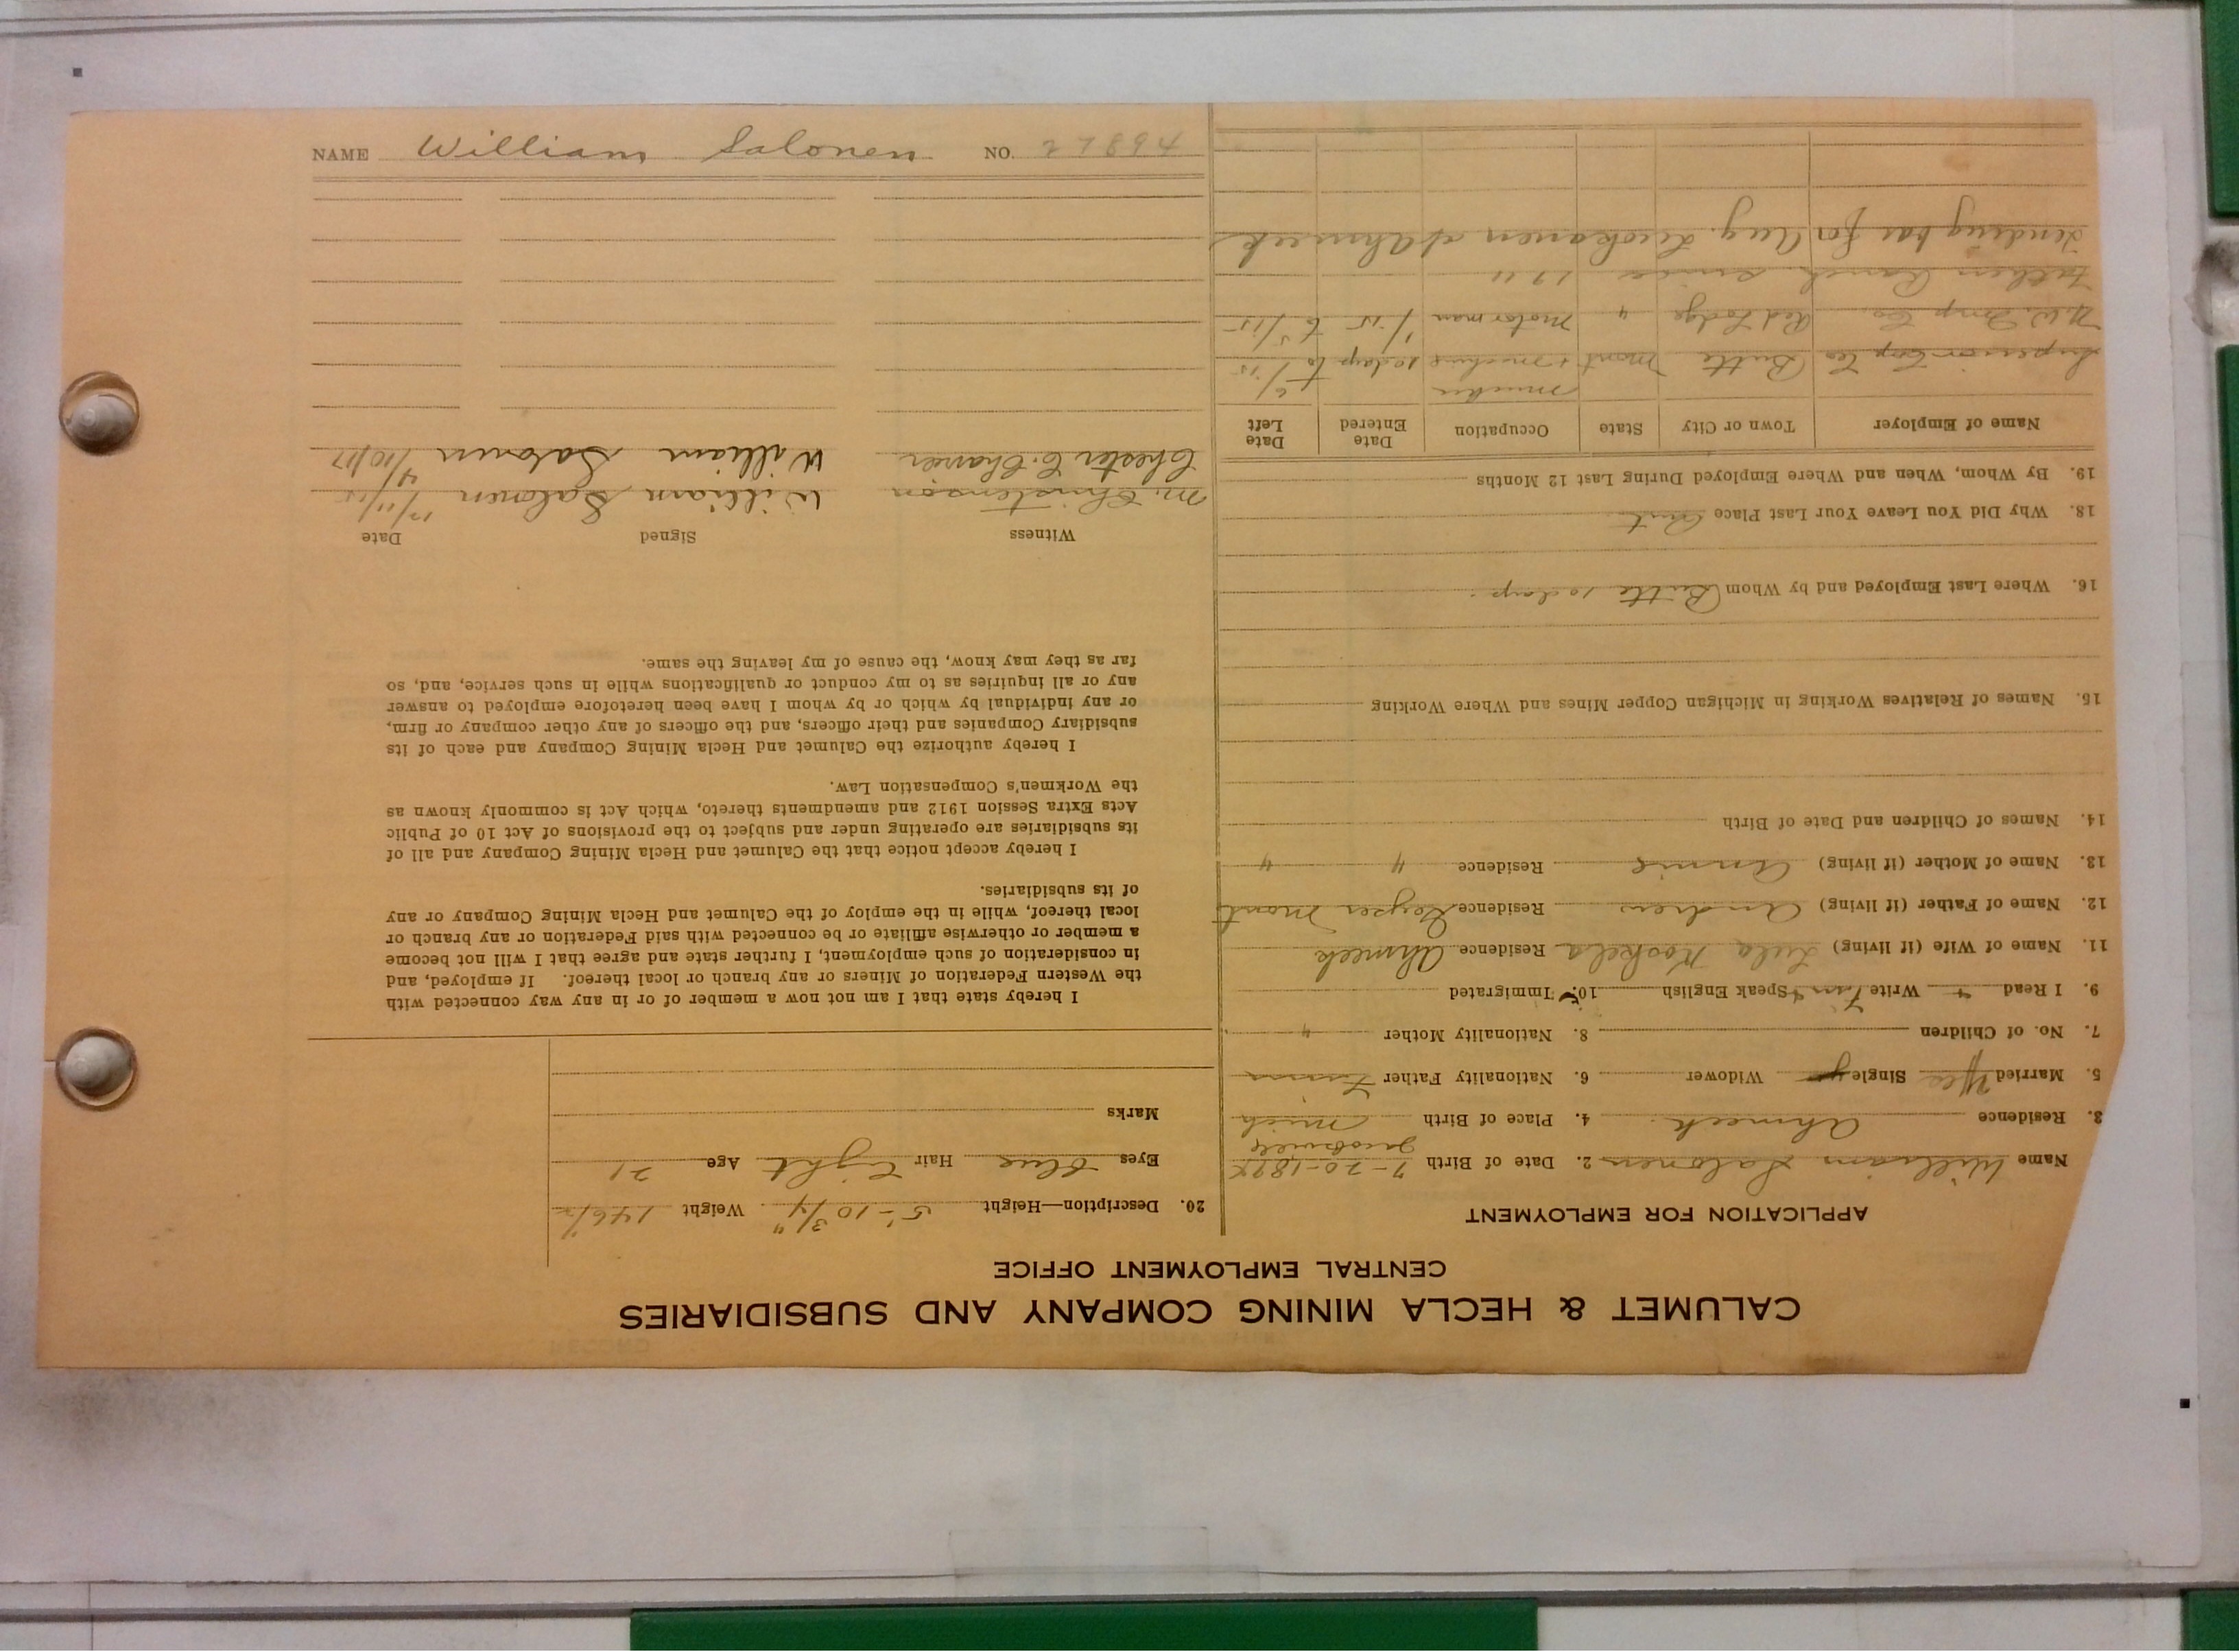 CALUMET & HECLA MINING COMPANY AND SUBSIDIARIES
CENTRAL EMPLOYMENT OFFICE
APPLICATION FOR EMPLOYMENT
Name William Salonen 2. Date of Birth 7-20-189
3. Residence Ahmeek 4. Place of Birth Jacobsville Mich
5. Married Yes Single Widower 6. Nationality Father Finn
7. No. of Children 8. Nationality Mother "
9. I Read + Write Finn + Speak English 10. Immigrated
11. Name of Wife (if living) Lula Koskela Residence Ahmeek
12. Name of Father (if living) Andrew Residence Geyser Mont
13. Name of Mother (if living) Annie Residence " "
14. Names of Children and Date of Birth
15. Names of Relatives Working in Michigan Copper Mines and Where Working
16. Where Last Employed and by Whom Butte 10 days.
18. Why Did You Leave Your Last Place Quit
19. By Whom, When and Where Employed During Last 12 Months
Name of Employer Town or City State Occupation Date Entered Date Left
Superior Cop Co Butte Mont mucker + machine 10 days to 6/15
N.W. Imp Co. Red Lodge " Motorman 1/15 to 5/15
Father Ranch since 1911
Tending bar for Aug. of Ahmeek
20. Description—Height 5'-10 3/4" Weight 146 1/2
Eyes Blue Hair Light Age 21
Marks
I hereby state that I am not now a member of or in any way connected with
the Western Federation of Miners or any branch or local thereof. If employed, and
in consideration of such employment, I further state and agree that I will not become
a member or otherwise affiliate or be connected with said Federation or any branch or
local thereof, while in the employ of the Calumet and Hecla Mining Company or any
of its subsidiaries.
I hereby accept notice that the Calumet and Hecla Mining Company and all of
its subsidiaries are operating under and subject to the provisions of Act 10 of Public
Acts Extra Session 1912 and amendments thereto, which Act is commonly known as
the Workmen's Compensation Law.
I hereby authorize the Calumet and Hecla Mining Company and each of its
subsidiary Companies and their officers, and the officers of any other company or firm,
or any individual by which or by whom I have been heretofore employed to answer
any or all inquiries as to my conduct or qualifications while in such service, and, so
far as they may know, the cause of my leaving the same.
Witness Signed Date
M. Christenson William Salonen 12/11/15
Chester C. William Salonen 4/10/17
NAME William Salonen NO. 27894